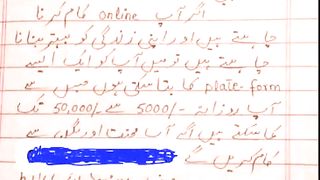 اگر آپ online کام کرنا
چاہتے ہیں اور اپنی زندگی کو بہتر بنانا
چاہتے ہیں تو میں آپ کو ایک ایسے
plate-form کا بتا سکتی ہوں جس سے
آپ روزانہ 5000/- سے 50,000/- تک
کما سکتے ہیں اگر آپ محنت اور لگن سے
کام کریں گے